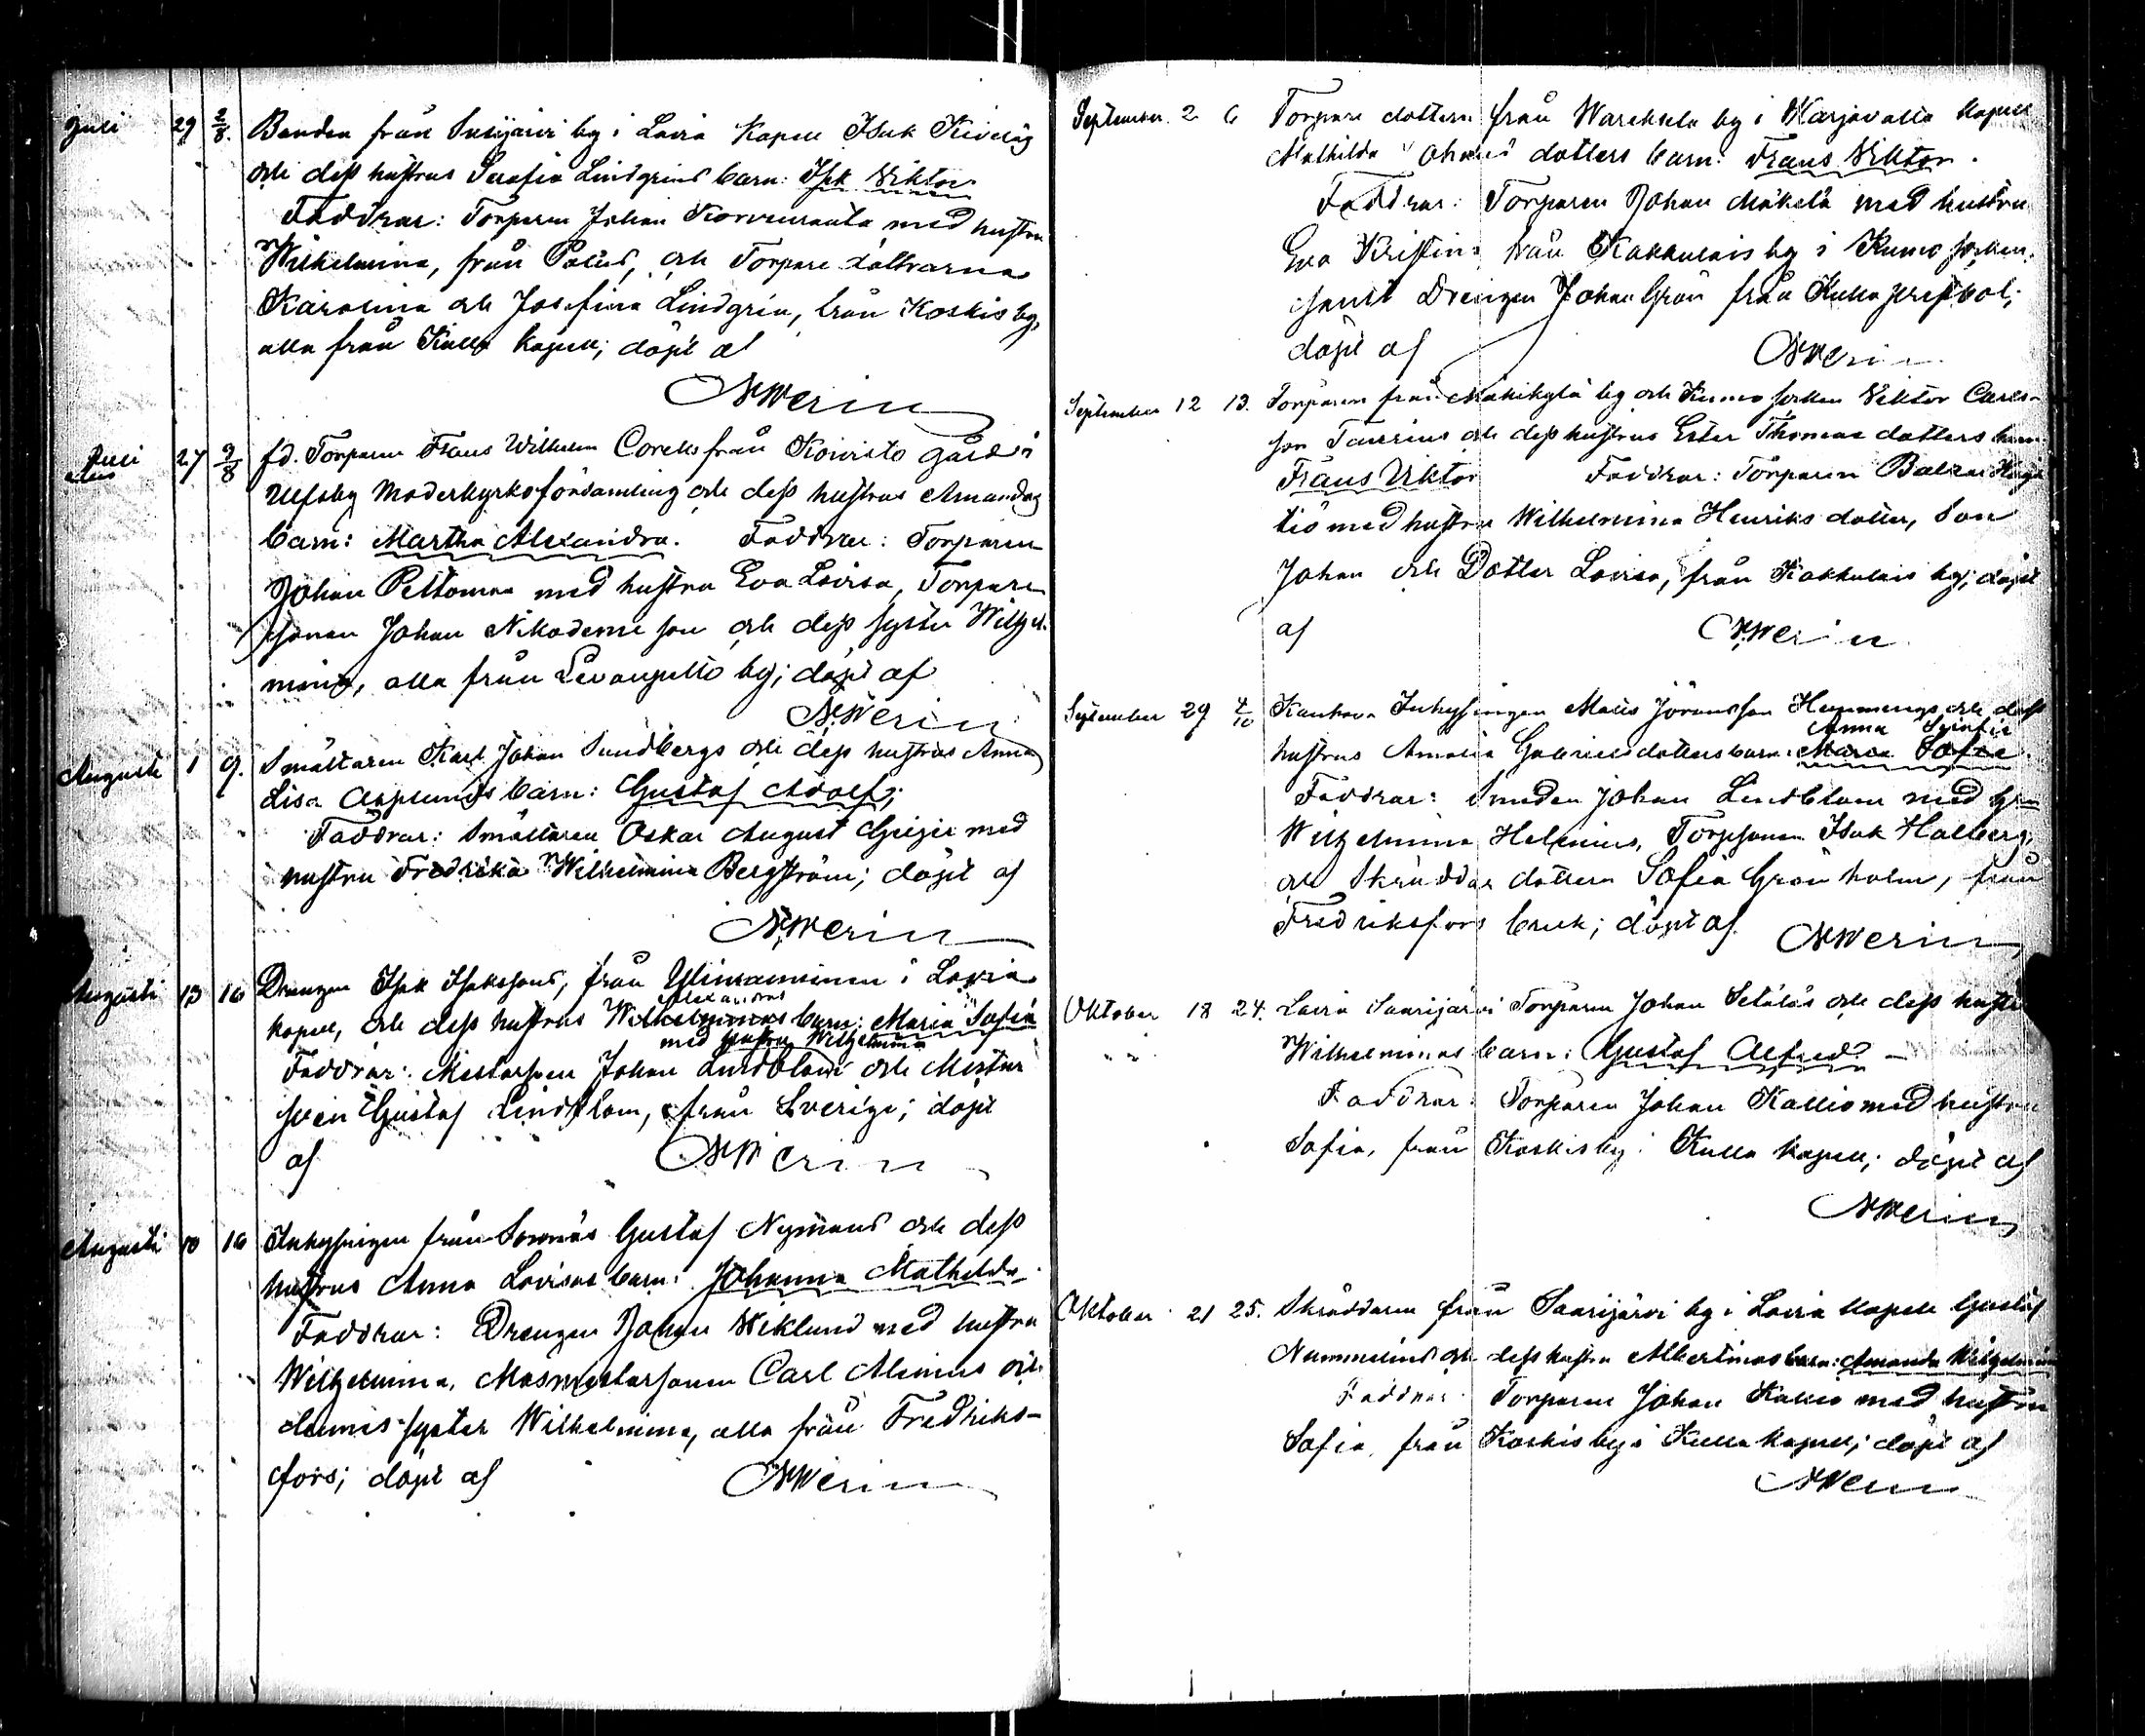 Juli 29 2/8. Bonden från Susijärvi by i Lavia Kapell Isak Kiveläs
och dess hustrus Serafia Lindgrens barn: Isak Viktor
Faddrar: Torparen Johan Korvenranta med hustru
Wilhelmina, från Palus, och Torpare döttrarna
Karolina och Josefina Lindgrén, från Koskis by,
alla från Kulla kapell; döpt af
NWerin
Juli 27 2/8 fd. Torparen Frans Wilhelm Corells från Koivisto gård i
Ulfsby Moderkyrkoförsamling och dess hustrus Amandas
barn: Martha Alexandra. Faddrar: Torparen
Johan Peltomaa med hustru Eva Lovisa, Torpare
sonen Johan Nikodemsson och dess syster Wilhel-
mina, alla från Levanpelto by; döpt af
N.Werin
Augusti 1 9. Smältaren Karl Johan Sundbergs och dess hustrus Anna
Lisa Asplunds barn: Gustaf Adolf;
Faddrar: Smältaren Oskar August Geijer med
hustru Fredrika Wilhelmina Bergström; döpt af
NWerin
Augusti 13 16 Drengen Isak Isakssons, från i Lavia
Alexandras
kapell, och dess hustrus Wilhelminas barn: Maria Sofia
med hustru Wilhelmina
Faddrar: Mästarsven Johan Lindblom och Mästar
sven Gustaf Lindblom, från Sverige; döpt
af NWerin
Augusti 10 16 Inhysingen från Sonnäs Gustaf Nymans och dess
hustrus Anna Lovisas barn: Johanna Mathilda.
Faddrar: Drengen Johan Wiklund med hustru
Wilhelmina, Masmästarsonen Carl Alenius och
dennes syster Wilhelmina, alla från Fredriks-
fors; döpt af NWerin
September 2 6 Torpare dottern från Wareksela by i Harjavalta kapell
Mathilda Johans dotters barn: Frans Viktor.
Faddrar: Torparen Johan Mäkelä med hustru
Eva Kristina från Kakkulais by i Kumo socken.
samt Drengen Johan Grön från Kulla
döpt af NWerin
September 12 13. Torparen från by och Kumo socken Viktor Carls-
son och dess hustrus Ester Thomas dotters barn
Frans Viktor Faddrar: Torparen Balzar
med hustru Wilhelmina Henriks dotter, Son
Johan och Dotter Lovisa, från Kakkulais by; döpt
af NWerin
September 29 4/10 Inhysingen Matts Jöransson Hemmings och dess
Anna Serafia
hustrus Amalia Gabrielsdotters barn: Maria Sofia.
Faddrar: Smeden Johan Lindblom med
Wilhelmina Helenius, Torpsonen Isak Hallberg,
och Skräddar dottern Sofia Grönholm, från
Fredriksfors bruk; döpt af NWerin
Oktober 18 24. Lavia Saarijärvi Torparen Johan Setäläs och dess hustru
Wilhelminas barn: Gustaf Alfred. –
Faddrar: Torparen Johan Kallio med hustru
Sofia, från Koskis by i Kulla kapell; döpt af
NWerin
Oktober 21 25. Skräddaren från Saarijärvi by i Lavia kapell Gustaf
Nummelins och dess hustru Albertinas barn: Amanda Wilhelmina
Faddrar Torparen Johan Kallio med hustru
Sofia, från Koskis by i Kulla kapell; döpt af
NWerin